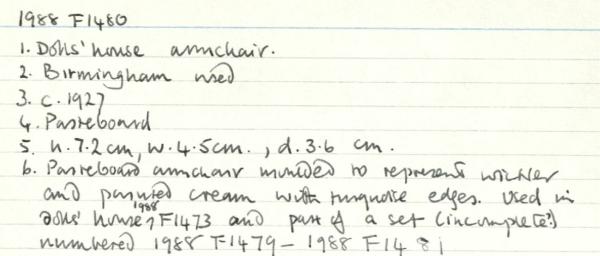 1988 F1480
1. Dolls' house armchair.
2. Birmingham used
3. c. 1927
4. Pasteboard
5. h. 7.2 cm, w. 4.5cm., d. 3.6 cm.
6. Pasteboard armchair moulded to represent wicker
and painted cream with turquoise edges. Used in
dolls' house 1988 F1473 and part of a set (incomplete?)
numbered 1988 F1479 – 1988 F1481